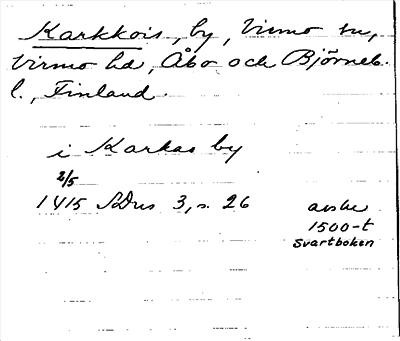 Karkkois, by, Virmo sn,
Virmo hd, Åbo och Björneb.
l., Finland.
i Karkas by
2/5
1415 SDns 3, s. 26 avskr
1500-t
Svartboken